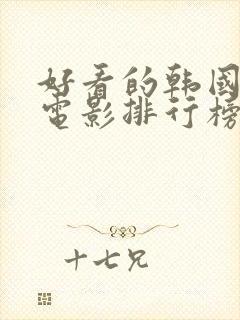 好看的韩國
電影排行榜
十七兄